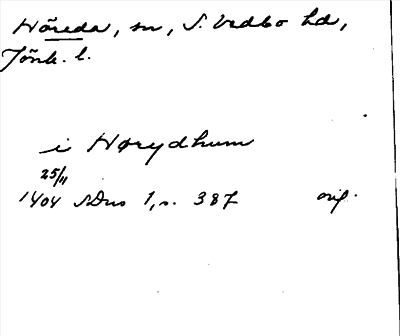 Höreda, sn, S. Vedbo hd,
Jönk. l.
i Hørydhum
25/11
1404 SDns 1, s. 387 orig.